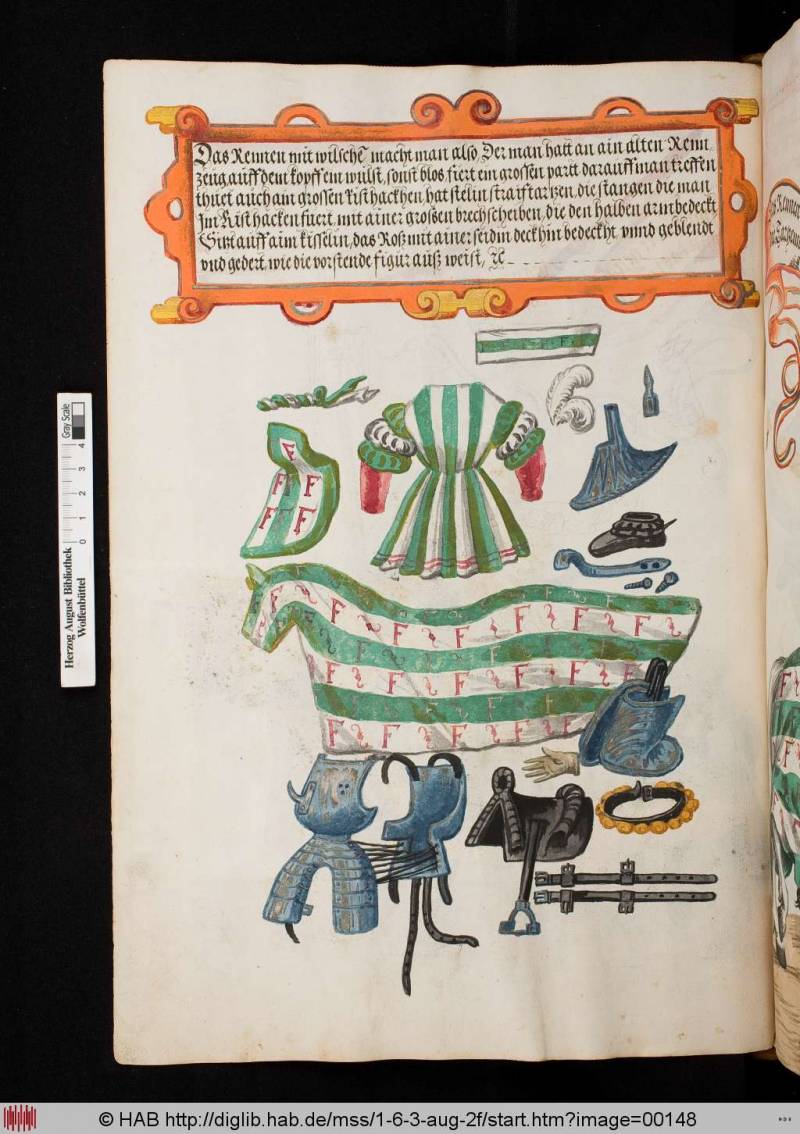 Das Rennen mit wilschē macht man also, Der man hatt an ain alten Renn
zeug auff dem kopff ein wulst, sonst blos, fiert ein grossen partt darauff man treffen
thuet auch ain grossen Rist hackhen hat die stangen die man
Im Rist hacken fuert, mit ainer grossen brechscheiben, die den halben arm bedeckt
Sitzt auff aim kisselin, das Roß mit ainer seidin deckhin bedeckht, vnnd geblendt
vnd gedert, wie die vorstende figur auß weist, ⁊c
F F F F F
F F F F F F
F F F F F
F F F F F
Gray Scale
0 1 2 3 4
Herzog August Bibliothek
Wolfenbüttel
© HAB http://diglib.hab.de/mss/1-6-3-aug-2f/start.htm?image=00148